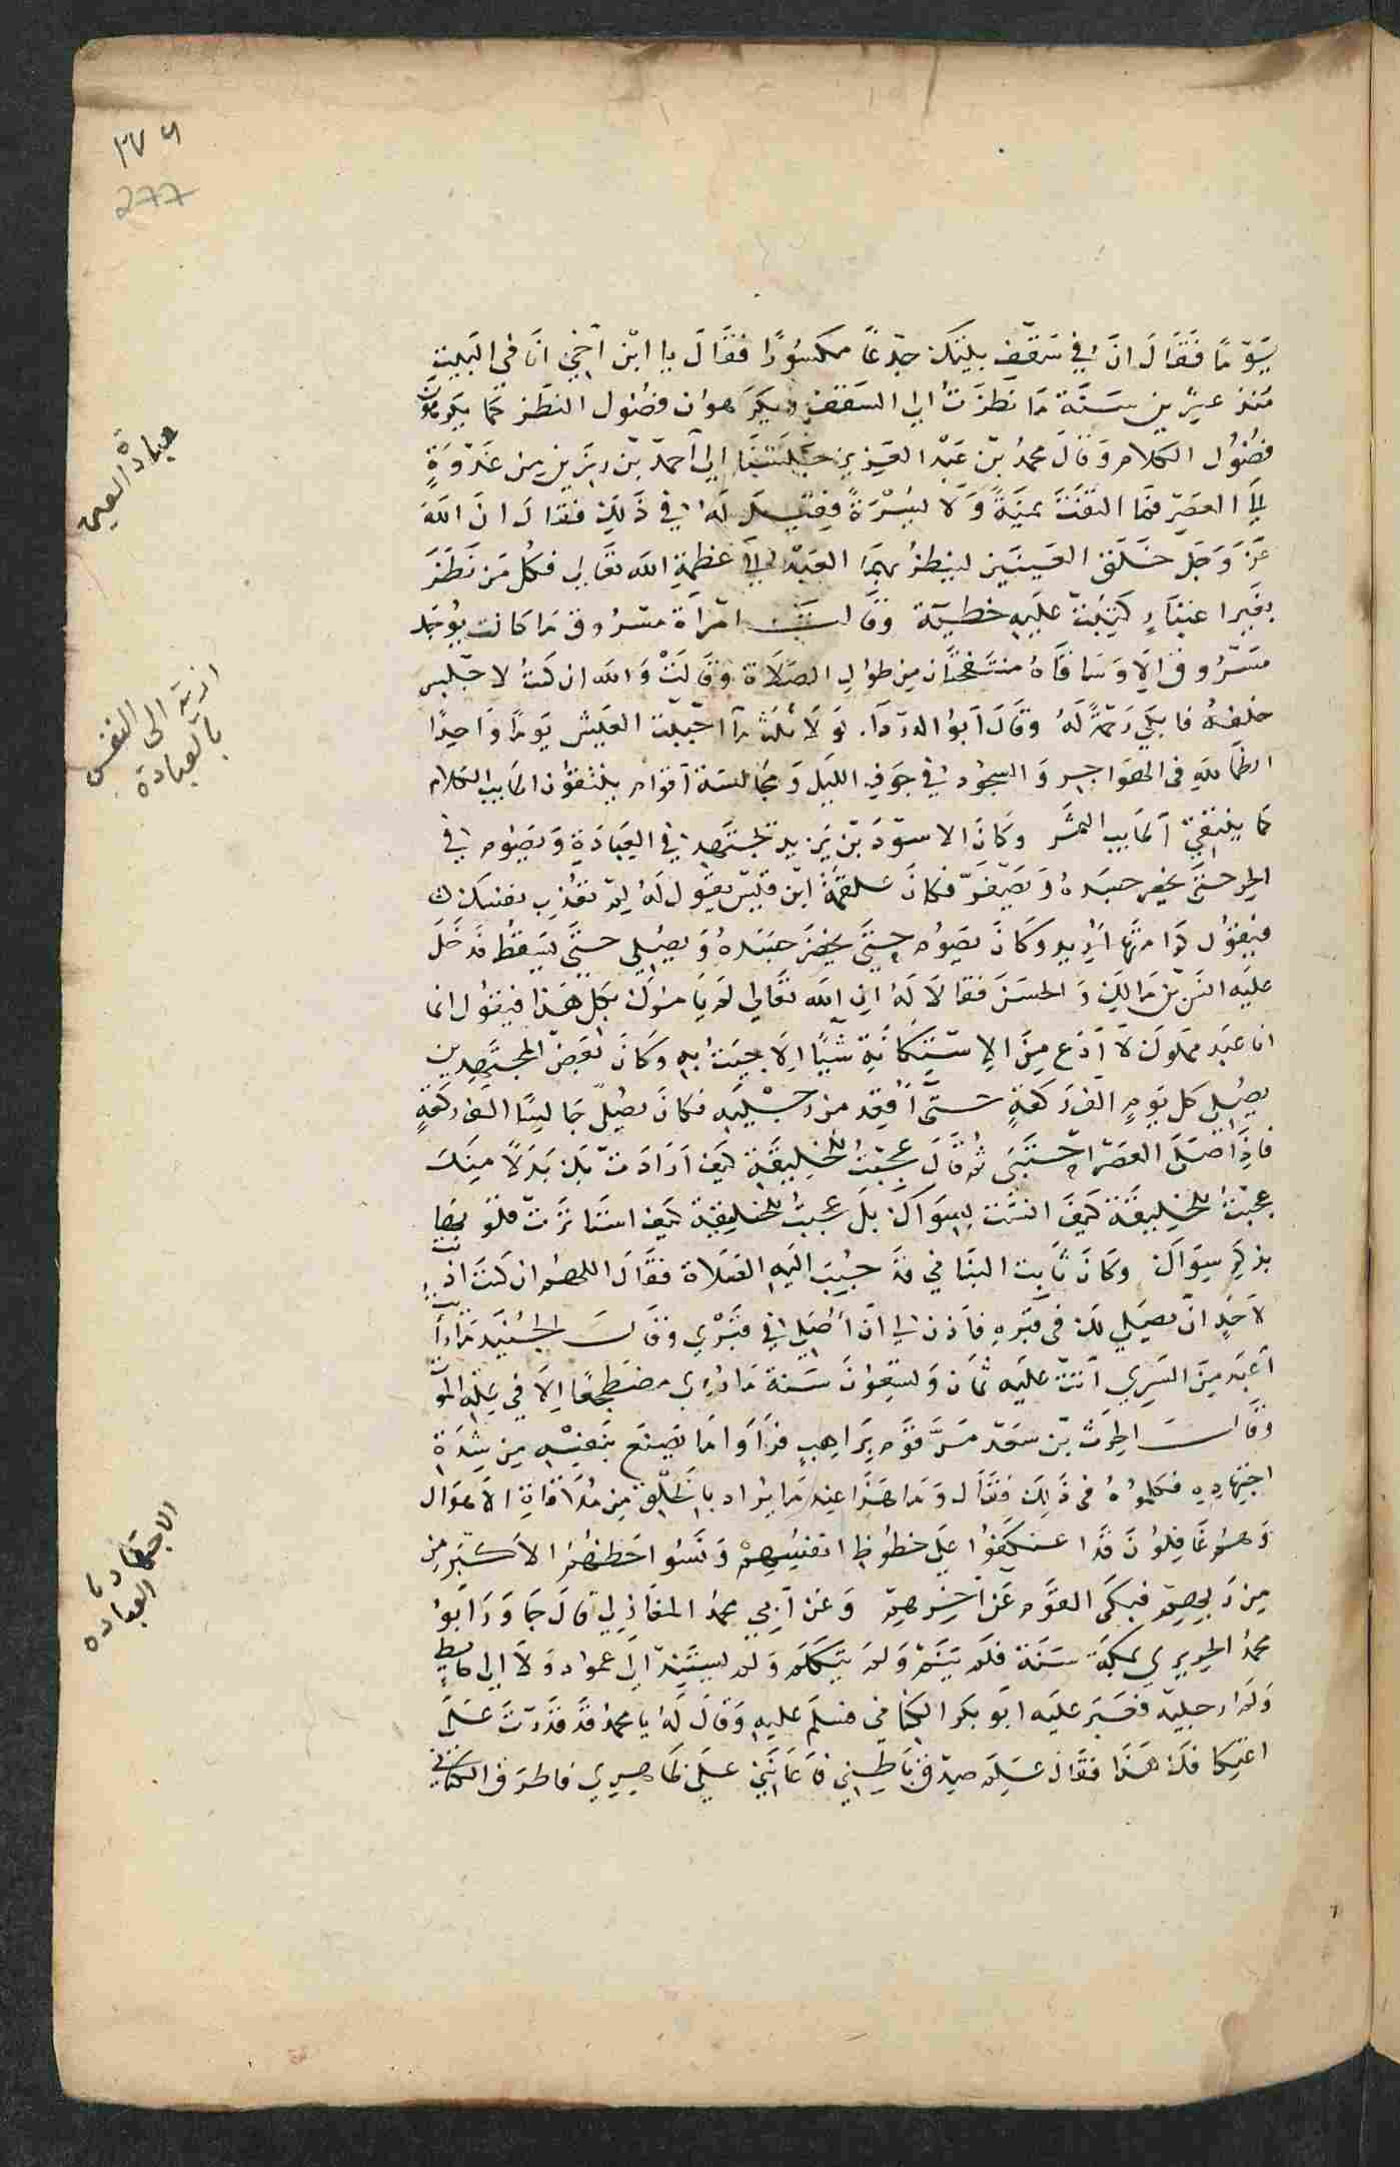 ٢٧٦
277
يَوْمًا فَقَالَ انَّ في سَقْفِ بيتك جِذْعًا مكسُورًا فقَالَ يا ابْنَ اخي انّ في البَيتِ
مُنذ عشرين سَنَة مَا نَظَرتُ الى السَقفِ وَيكرَهون فضُول النَظر كمَا يكرهون
فضُولَ الكلام وَقالَ محمدُ بْن عَبْد العَزيز جلَسْنَا إلى أحمدَ بْن رزين من غدْوَةٍ
الى العصْر فمَا التفَتَ يمنَةً وَلا يسْرَةً فقيلَ لَهُ في ذلِكَ فقال انَّ اللهَ
عَزَّ وَجَل خَلَقَ العَينَين لينظُر بهمَا العَبْد إلى عَظمةِ الله تعَالى فكُل مَن نَظرَ
بغَير اعتبَارٍ كتِبَتْ عليهِ خطيئة وقالت امْرَأة مسْرُوق مَا كانت يوُجَد
مَسْرُوق الاَّ وَسَاقَاهُ منتفختَان مِن طوُل الصَلاَة وقَالَتْ وَالله ان كنتُ لاجْلِس
خلفهُ فابكي رَحمَةً لَهُ وقالَ أبوُ الدرْدَاء لوْلاَ ثلاثٌ مَا أحْبَبْت العَيش يَومًا وَاحِدًا
الظمَأ لله في الهَوَاجِر وَالسجُود في جَوفِ الليل وَمجَالسَة أقوَام ينتَقوُن أطايِبَ الكلام
كمَا ينتقى أطايب التمْر وَكانَ الاسوَد بْن يَزيد يَجتَهد في العِبَادَةِ وَيَصُوم في
الحر حَتى يخضر جسَدهُ وَيَصْفَرّ فكانَ علقمَة ابْن قيْس يَقول لَهُ لِمَ تعَذب نفسَك
فيقول كرَامتهَا اُريد وكانَ يَصُوم حَتَّى يخضر جسَدهُ وَيصَلي حَتَّى يَسقُط فدَخَلَ
عليه انس بْن مَالِك وَالحسَن فقالاَ لَهُ ان الله تعَالى لم يَأمُرك بكل هذَا فيقول انما
انا عَبْد مملوك لاَ أدَع مِنَ الاِستِكانَةِ شيْئًا الاَّ جِئتُ بهِ وكانَ بَعض المجتَهدين
يصَلي كل يَومٍ ألف رَكعةٍ حَتَّى اُقعِد من رجْلَيه فكانَ يصَلي جَالسًا الف ركعَةٍ
فاذَا صَلى العصْر احتبَى ثم قالَ عَجِبْتُ للخليقَةِ كيفَ أرَادَتْ بكَ بَدَلاً مِنكَ
عَجِبْتُ للخليقَة كيفَ انسَت بسِوَاكَ بل عَجِبتُ للخليقة كيف استنَارَت قلوبهَا
بذكرِ سِوَاكَ وكانَ ثابت البنَاني قدْ حُبِبَ اليهِ الصَلاة فقَالَ اللهم ان كنتَ اذنت
لاَحَدٍ انْ يصَلي لك في قبره فاذن لي ان أُصَلي في قبْري وقال الجُنيْد مَا رأيت
أعبَد مِنَ السَري أتَتْ عليه ثمَان وَتِسْعُونَ سَنة مَا رُئِيَ مُضطجعًا الاَّ في علة الموت
وقال الحرث بْن سَعْد مَرَّ قوْم برَاهِبٍ فرَأوا مَا يصْنَع بنفسِهِ مِن شِدَةِ
اجتهادِهِ فكلمُوهُ في ذلِكَ فقالَ وَمَا هذا عند مَا يُرَاد بالخلق مِن ملاقاةِ الاَهوَال
وَهُم غافِلوُنَ قَد اعْتَكفُوا عَلى حُظوظ انفسِهِمْ وَنَسُوا حَظهُم الاَكبَر مِن
مِن رَبهمْ فبَكى القوَم عَن آخِرهِمْ وَعَن أبي محمد المغَازلي قالَ جَاوَرَ أبوُ
محمد الجريري بمكةَ سَنَة فلم يَنَمْ وَلَم يَتَكلم وَلم يَستَنِدْ الى عمُود وَلاَ الى حَائط
وَلَم يمد رجليه فعَبَرَ عليه ابوُ بكر الكتاني فسَلم عليهِ وَقالَ لَهُ يا محمد قدْ قدَرْتَ عَلى
اعتكافك هذَا فقالَ عَلِمَ صِدْق بَاطِني فأعَانَني عَلى ظاهِري فاطرَق الكتاني
النفس
بالعبادة
الاجتهاد في
العباده